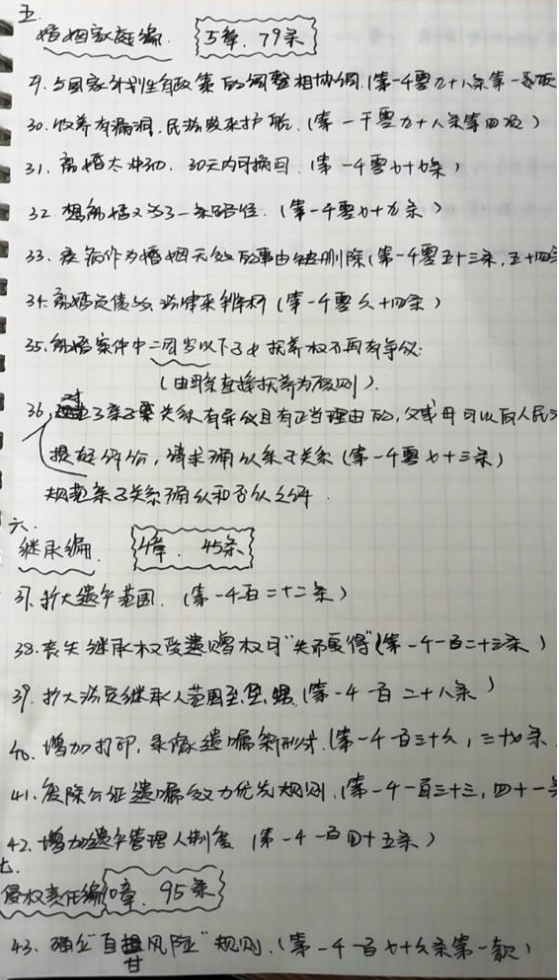 五.
婚姻家庭编. 5章, 79条
29. 与国家计划生育政策的调整相协调.(第一千零九十八条第一款
30. 收养有漏洞, 民法典来护航. (第一千零九十八条第四项)
31. 离婚太冲动, 30天内可撤回. (第一千零七十七条)
32 想离婚又多了一条路径. (第一千零七十九条)
33. 疾病作为婚姻无效的事由被删除(第一千零五十三条, 五十四条
34. 离婚定债务, 法律来判断 (第一千零八十四条)
35. 离婚案件中二周岁以下子女抚养权不再有争议:
(由母亲直接抚养为原则).
36, 对亲子关系有异议且有正当理由的, 父或母可以向人民法
提起诉讼, 请求确认亲子关系 (第一千零七十三条)
规范亲子关系确认和否认之诉.
六.
继承编. 4章. 45条
37. 扩大遗产范围. (第一千一百二十二条)
38. 丧失继承权受遗赠权可"失而复得"(第一千一百二十五条)
39. 扩大法定继承人范围至侄、甥 (第一千一百二十八条)
40. 增加打印, 录像遗嘱新形式.(第一千一百三十六, 三十七条
41. 废除公证遗嘱效力优先规则. (第一千一百三十三, 四十一条
42. 增加遗产管理人制度 (第一千一百四十五条)
七.
侵权责任编 10章, 95条
43. 确立"自甘风险"规则. (第一千一百七十六条第一款)